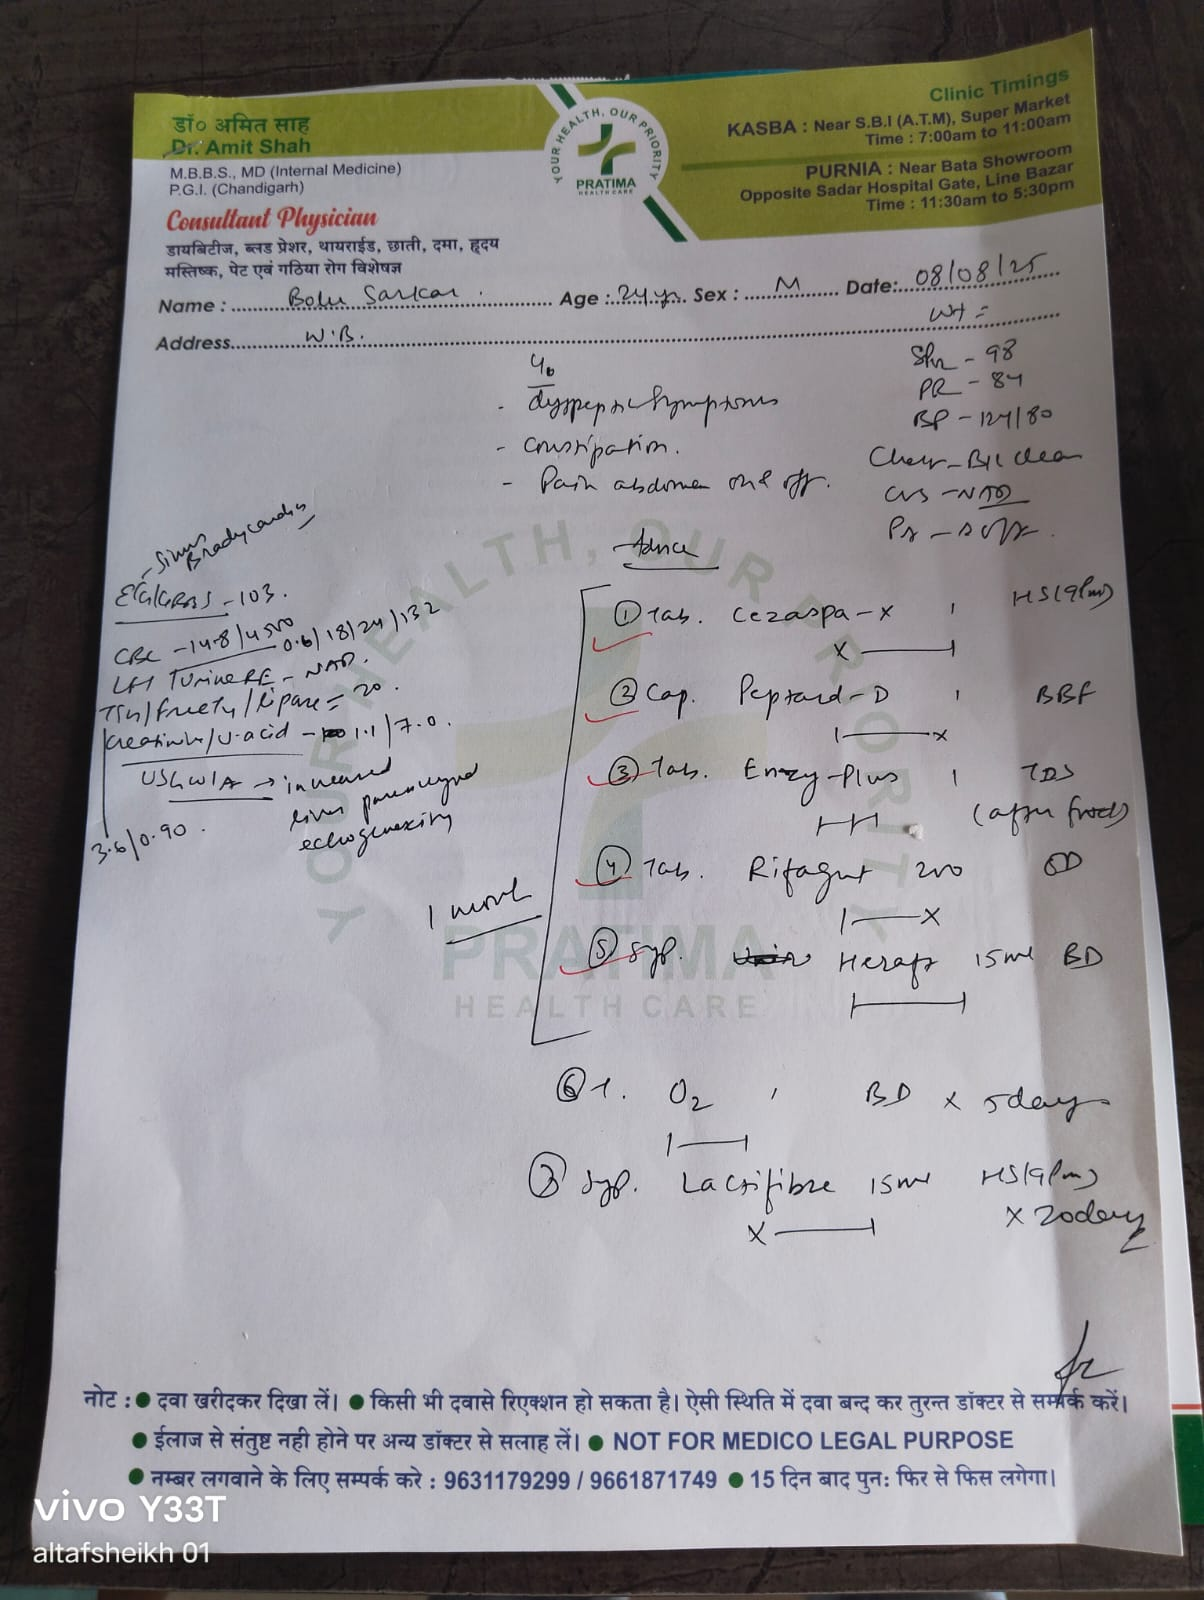 डॉ० अमित साह
Dr. Amit Shah
M.B.B.S., MD (Internal Medicine)
P.G.I. (Chandigarh)
Consultant Physician
डायबिटीज, ब्लड प्रेशर, थायराईड, छाती, दमा, हृदय
मस्तिष्क, पेट एवं गठिया रोग विशेषज्ञ
YOUR HEALTH, OUR PRIORITY
PRATIMA
HEALTH CARE
Clinic Timings
KASBA : Near S.B.I (A.T.M), Super Market
Time : 7:00am to 11:00am
PURNIA : Near Bata Showroom
Opposite Sadar Hospital Gate, Line Bazar
Time : 11:30am to 5:30pm
Name : Sarkar Age : 24 yr Sex : M Date: 08/08/25
Address W.B.
Wt =
- 98
PR - 84
BP - 124/80
- dyspeptic symptoms
- Constipation.
- Pain abdomen on & off.
Chest - B/L clear
CVS - NAD
P/A - soft
- Sinus Bradycardia
ECG/GRBS - 103.
CBC - 14.8/4500
LFT 0.6/18/24/132
Urine RE - NAD.
TSH/ /lipase = 20.
Creatinine/U.acid - 1.1/7.0.
USG W/A → increased
liver parenchymal
echogenicity
3.6/0.90.
Advice
① Tab. Cezaspa-X 1 HS (9pm)
X
② Cap. -D 1 BBF
X
③ Tab. Enzy-Plus 1 TDS
(after food)
④ Tab. Rifagut 200 OD
X
⑤ Syp. 15ml BD
1 month
⑥ T. O2 1 BD x 5days
⑦ Syp. Lactifibre 15ml HS (9pm)
X
x 20days
YOUR HEALTH, OUR PRIORITY
PRATIMA
HEALTH CARE
नोट : ● दवा खरीदकर दिखा लें। ● किसी भी दवासे रिएक्शन हो सकता है। ऐसी स्थिति में दवा बन्द कर तुरन्त डॉक्टर से सम्पर्क करें।
● ईलाज से संतुष्ट नही होने पर अन्य डॉक्टर से सलाह लें। ● NOT FOR MEDICO LEGAL PURPOSE
● नम्बर लगवाने के लिए सम्पर्क करे : 9631179299 / 9661871749 ● 15 दिन बाद पुन: फिर से फिस लगेगा।
vivo Y33T
altafsheikh 01